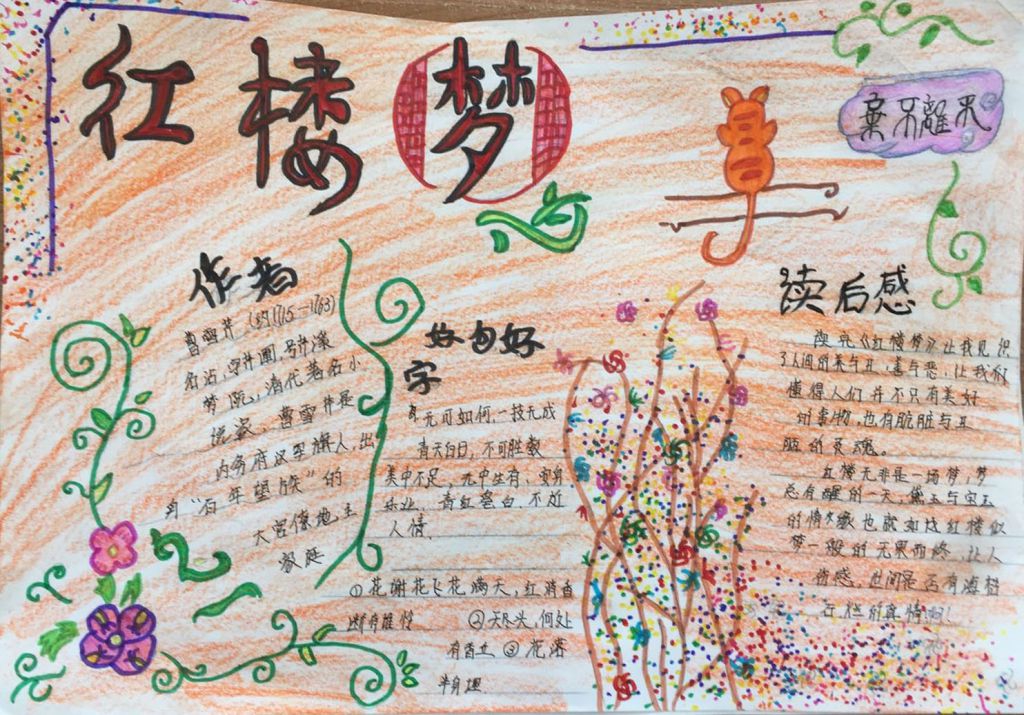 红楼梦
作者
曹雪芹(约1715—1763)
名沾,字梦
清代著名小
曹雪芹是
内务府汉军旗人,出
身“百年望族”的
大官僚地主
家庭
好句好
字
无可如何,一技无成
青天白日,不可胜数
美中不足,无中生有,安身
乐业,青红皂白,不近
人情、
①花谢花飞花满天,红消香
断有谁怜 ②天尽头,何处
有香丘 ③花落
读后感
《红楼梦》让我见识
了人间的美与丑,善与恶,让我们
懂得人们并不只有美好
的事物,也有肮脏与丑
陋的灵魂。
红楼无非是一场梦,梦
总有醒的一天,黛玉与宝玉
的情缘也就如这红楼似
梦一般的无果而终,让人
伤感,世间是否有
真情啊!